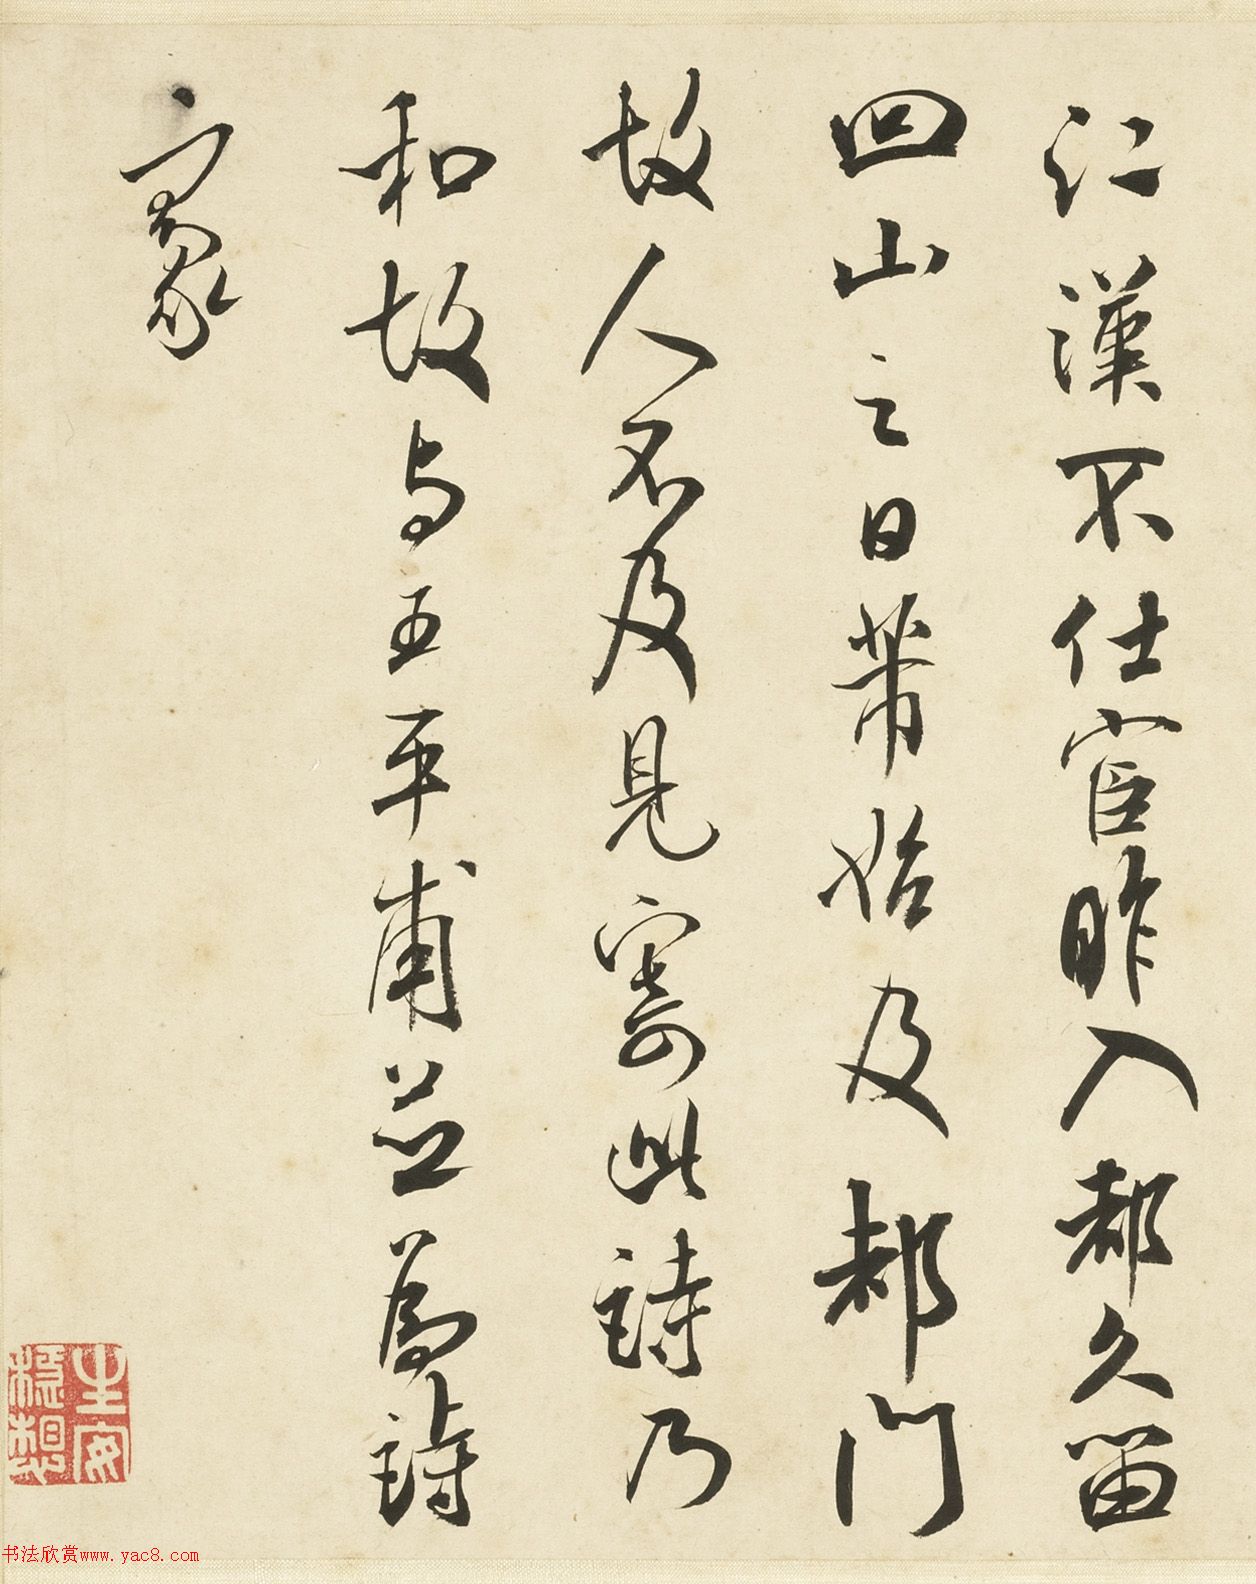 江漢不仕宦昨入都久留
四山之日第始及都门
故人不及見寄此詩乃
和故与王平甫並為詩
襄
书法欣赏www.yac8.com